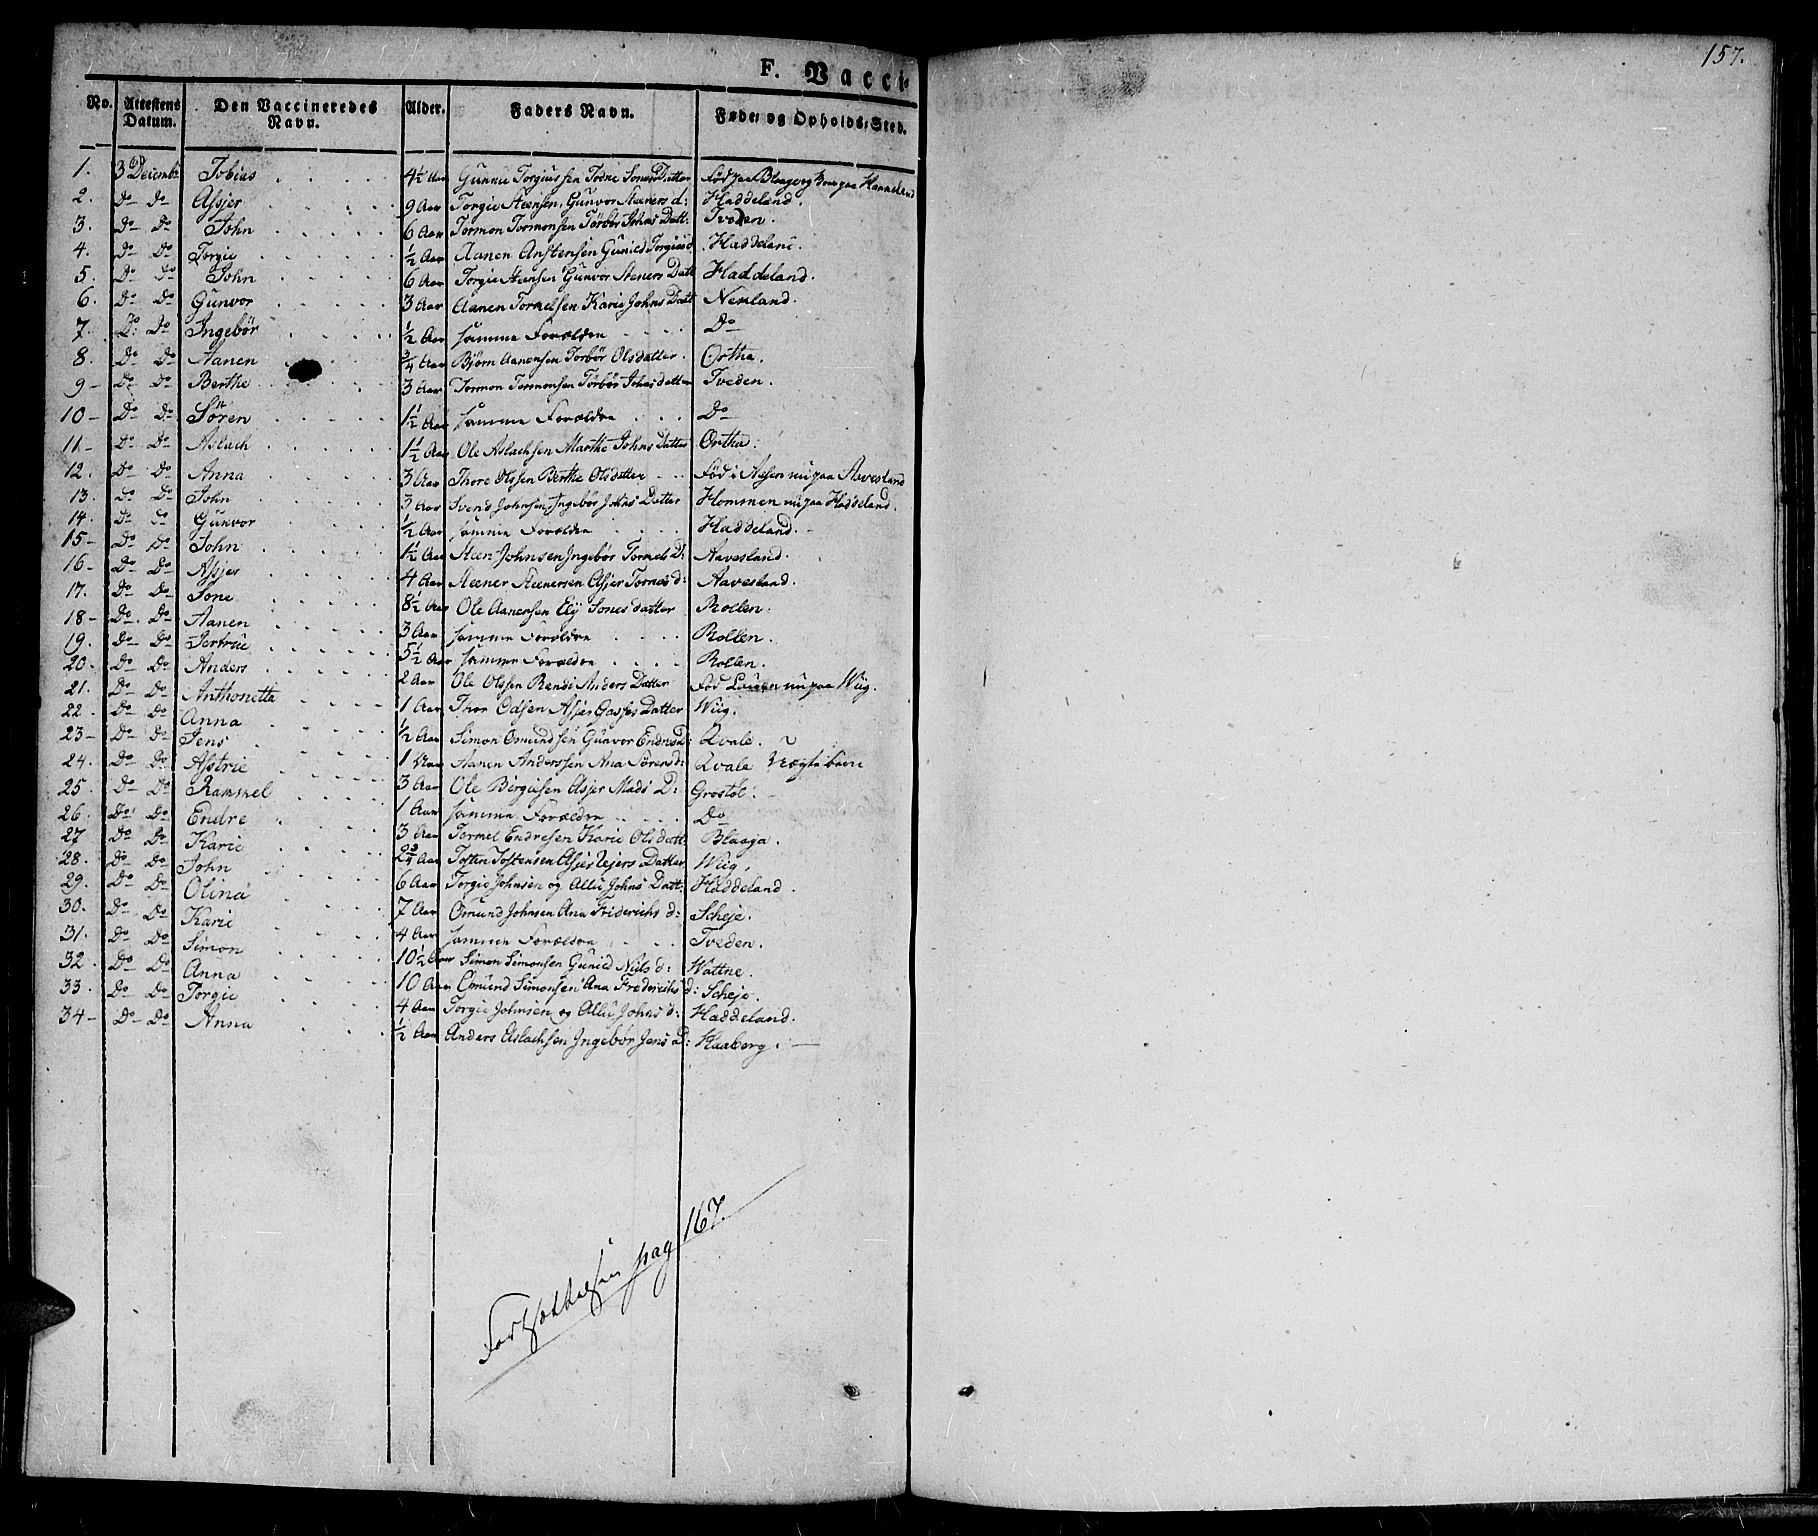 157.
F. Vacci-
No. Attestens Datum. Den Vaccineredes Navn. Alder. Faders Navn. Føde- og Opholds-Sted.
1. 3 Decembr Tobias 4½ Aar Gunne Torgiussen Todne Sones Datter Fød paa Blaage og Boer paa Hanneland
2. Do Do Assjer 9 Aar Torgie Steensen, Gunvor Steeners d: Haddeland.
3. Do Do John 6 Aar Tormon Tormonsen Torbor Johns Datt: Tveden.
4. Do Do Torgie ½ Aar Aanen Anstensen Gunild Torgius d. Haddeland.
5. Do Do John 6 Aar Torgie Steensen Gunvor Steners Datt Haddeland.
6. Do Do Gunvor 3 Aar Aanen Tormelsen Karie Johns Datt Nenland.
7. Do Do Ingebör ½ Aar samme Forældre Do
8. Do Do Aanen ¾ Aar Björn Aanensen Torbör Olsdatter. Ortha.
9 Do Do Berthe 3 Aar Tormon Tormonsen Törbör Johns datter Tveden.
10 Do Do Sören 1½ Aar samme Forældre Do
11 Do Do Aslach 1½ Aar Ole Aslachsen Marthe Johns Datter Ortha.
12. Do Do Anna 3 Aar Thore Olssen Berthe Olsdatter Fød i Aasen nu paa Aavesland
13. Do Do John 3 Aar Svend Johnsen, Ingebör Johns Datter Hommen nu paa Haddeland.
14. Do Do Gunvor ½ Aar samme Forældre Haddeland.
15 Do Do John 1½ Aar Steen Johnsen Ingebör Tormels D: Aavesland.
16 Do Do Assjer 4 Aar Steener Steenersen Assjer Tormels d: Aavesland.
17. Do Do Sone 8½ Aar Ole Aanensen Ely Sones datter Rollen.
18 Do Do Aanen 3 Aar samme Forældre Rollen.
19. Do Do Jertrue 5½ Aar samme Forældre Rollen.
20. Do Do Anders 2 Aar Ole Olssen Rendi Anders Datter Fød nu paa Wiig.
21. Do Do Anthonetta 1 Aar Thor Odsen Assjer Datter Wiig.
22. Do Do Anna ½ Aar Simon Omundsen Gunvor Endres D: Qvale.
23 Do Do Jens 1 Aar Aanen Anderssen Ana Sörens d: Qvale Uægte barn
24. Do Do Astrie 3 Aar Ole Birgiesen Assjer Mads D: Grostøl.
25. Do Do Rammel 1 Aar samme Forældre Do
26. Do Do Endre 3 Aar Tormel Endresen Karie Ols datt: Blaaga.
27 Do Do Karie 2¾ Aar Tosten Tostensen Assjer Datter Wiig.
28. Do Do John 6 Aar Torgie Johnsen og Allie Johns Datt: Haddeland.
29. Do Do Olina 7 Aar Omund Johnsen Ana Friderichs d: Scheje.
30. Do Do Karie 4 Aar samme Forældre Tveden.
31. Do Do Simon 10½ Aar Simon Simonsen Gunild Niels d: Wattne.
32. Do Do Anna 10 Aar Omund Simonsen Ana Frederichs d: Scheje.
33. Do Do Torgie 4 Aar Torgie Johnsen og Allie Johns d: Haddeland.
34 Do Do Anna ½ Aar Anders Aslachsen Ingebör Jens D: Haaberg.
Fortsættelsen pag 167.